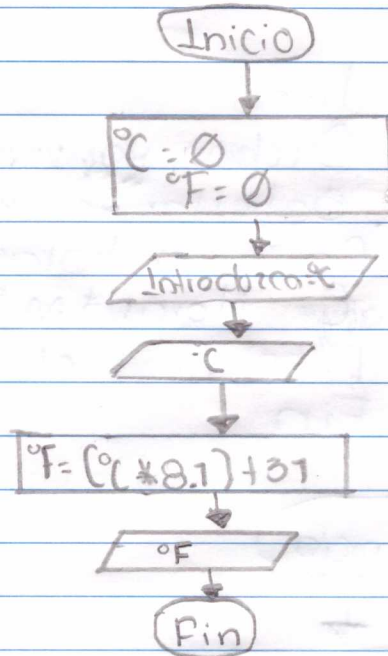 Inicio
°C = Ø
°F = Ø
Introduzca °C
°C
°F = (°C * 8.1) + 31
°F
Fin